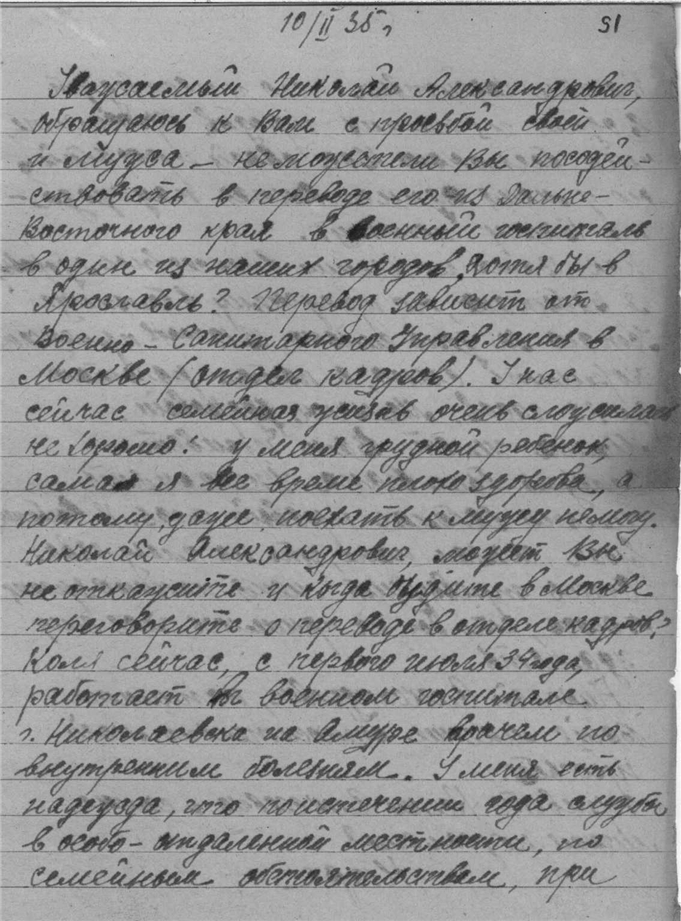 10/II 35 г. 51
Уважаемый Николай Александрович,
обращаюсь к Вам с просьбой своей
и мужа – не можете ли Вы посодей-
ствовать в переводе его из Дальне-
Восточного края в военный госпиталь
в один из наших городов, хотя бы в
Ярославль? Перевод зависит от
Военно-Санитарного Управления в
Москве (отдел кадров). У нас
сейчас семейная жизнь очень сложилась
не хорошо: у меня грудной ребенок,
сама я все время плохо здорова, а
потому даже поехать к мужу не могу.
Николай Александрович, может Вы
не откажите и когда будите в Москве
переговорите о переводе в отделе кадров?
Коля сейчас, с первого июля 34 года,
работает в военном госпитале
г. Николаевска на Амуре врачем по
внутренним болезням. У меня есть
надежда, что по истечении года службы
в особо-отдаленной местности, по
семейным обстоятельствам, при